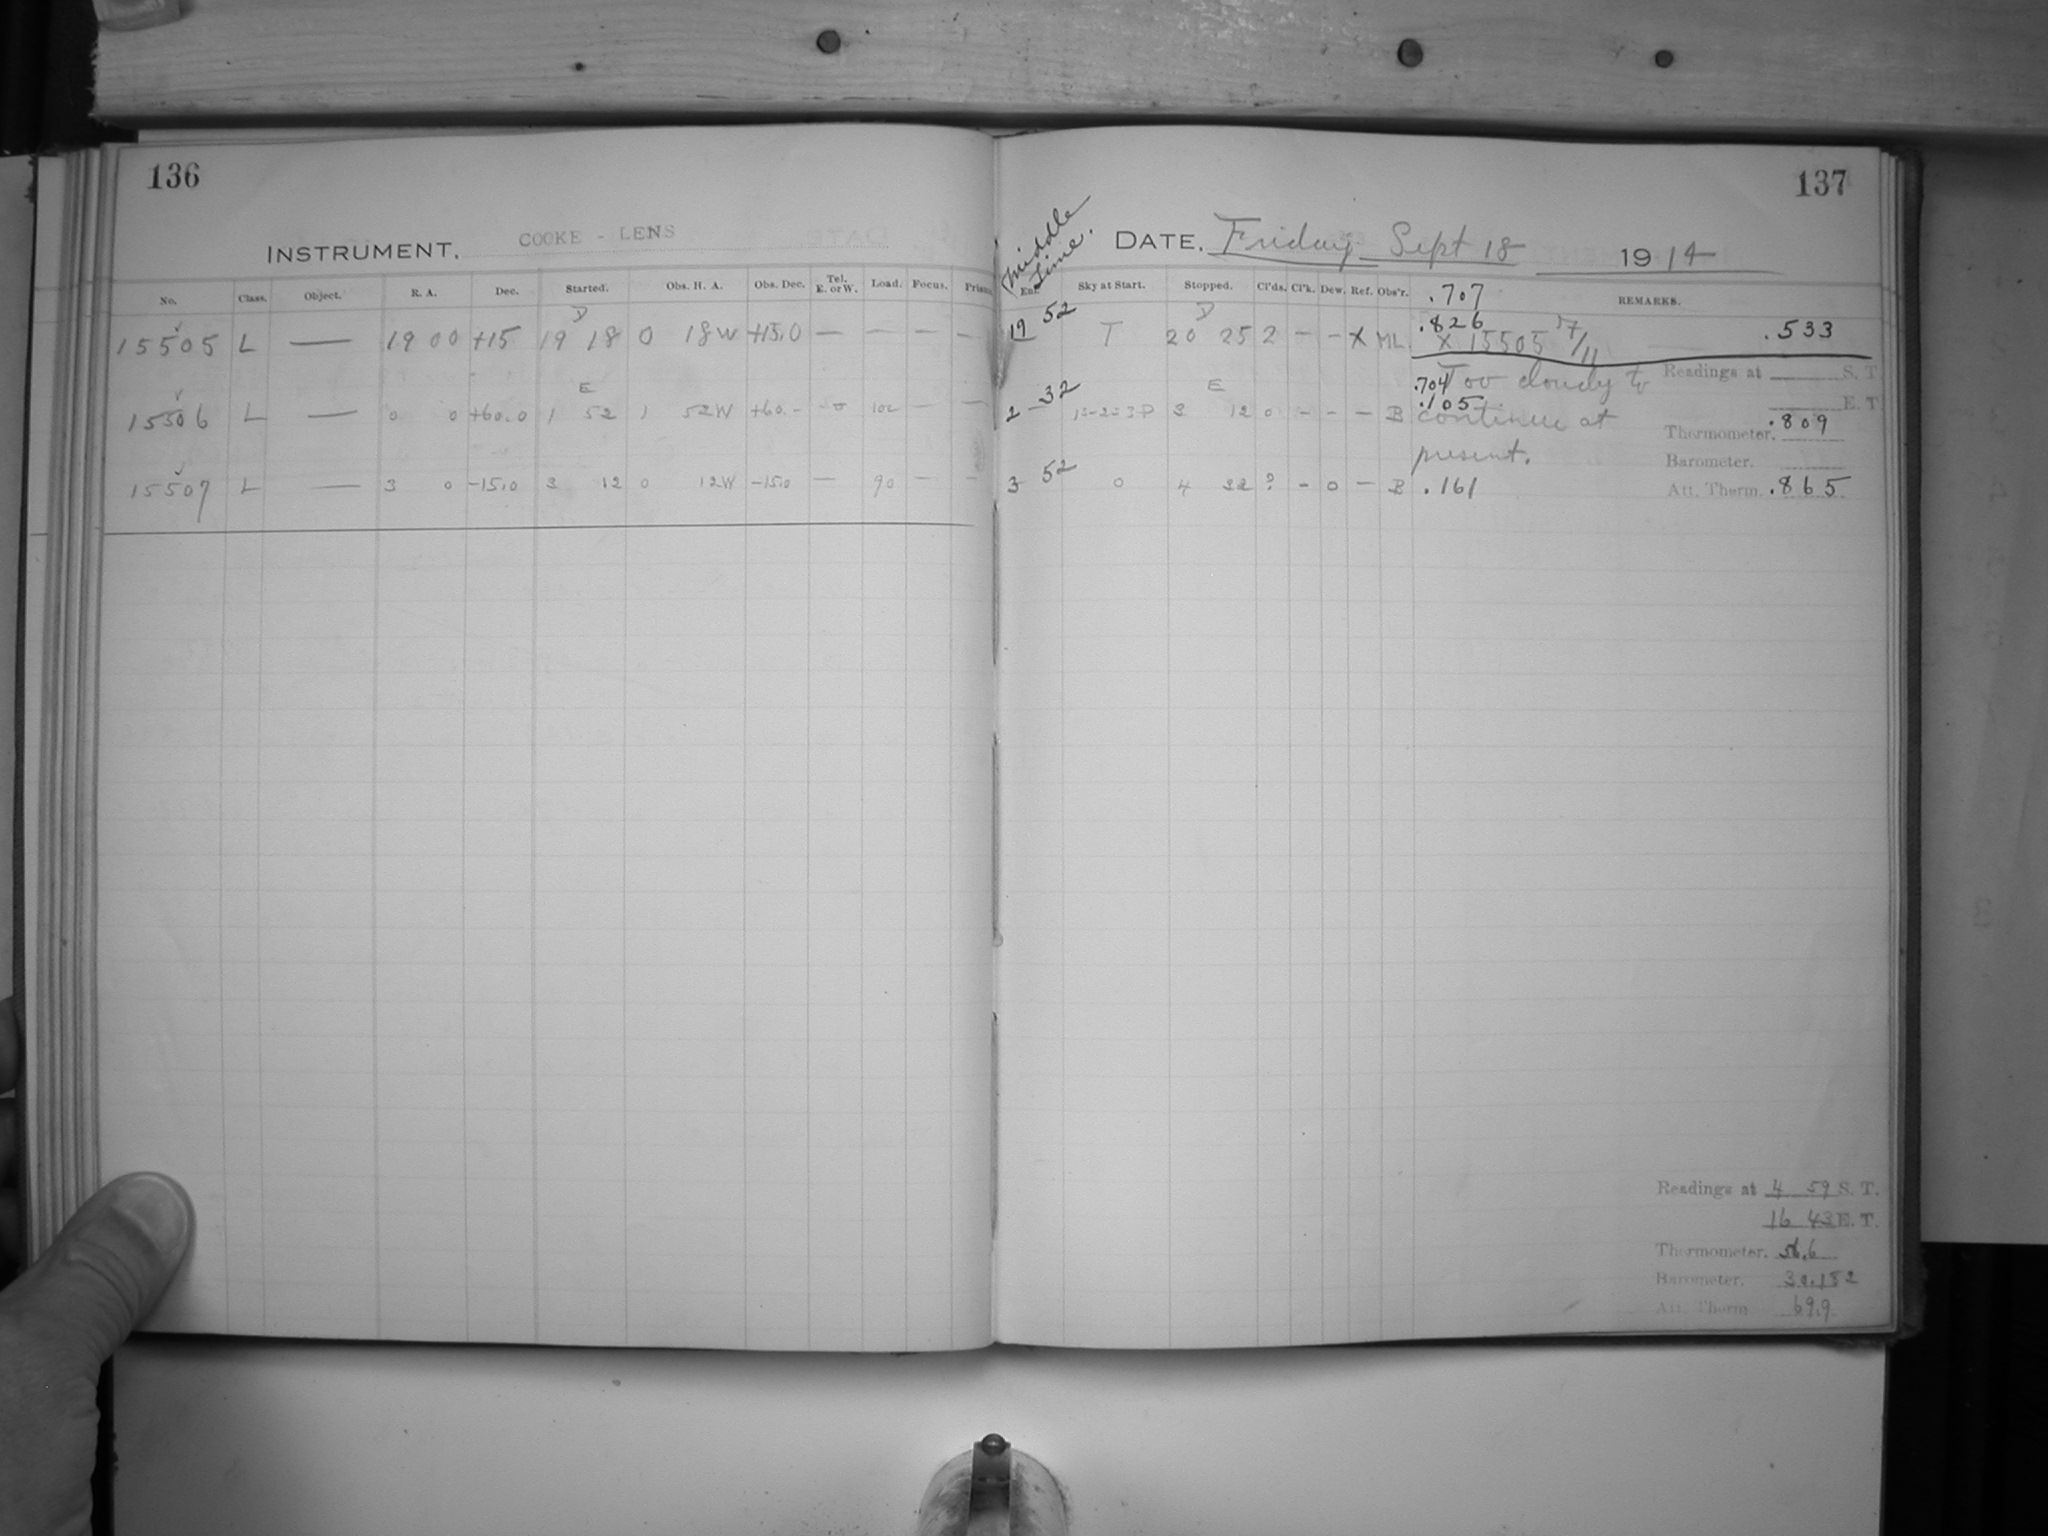 136
INSTRUMENT. COOKE - LENS
No. Class. Object. R. A. Dec. Started. Obs. H. A. Obs. Dec. Tel. E. or W. Load. Focus. Prism
D
15505 L — 19 00 +15 19 18 0 18W +15.0 — — — —
E
15506 L — 0 0 +60.0 1 52 1 52W +60.- 102 — —
15507 L — 3 0 -15.0 3 12 0 12W -15.0 — 90 — -
137
Middle Time.
DATE. Friday Sept 18 1914
Sky at Start. Stopped. Cl'ds. Cl'k. Dew. Ref. Obs'r. REMARKS.
.707
D
19 52 T 20 25 2 - - X ML. .826 .533
X 15505 17/11
Readings at S. T.
E
2 32 3 12 0 - - - B .704 Too cloudy to
.105 E. T
continue at .809
Thermometer.
present.
Barometer.
3 52 0 4 32 ? - 0 - B .161
Att. Therm. .865
Readings at 4 59 S. T.
16 43 E. T.
Thermometer. 56.6
Barometer. 30.152
Att. Therm 69.9